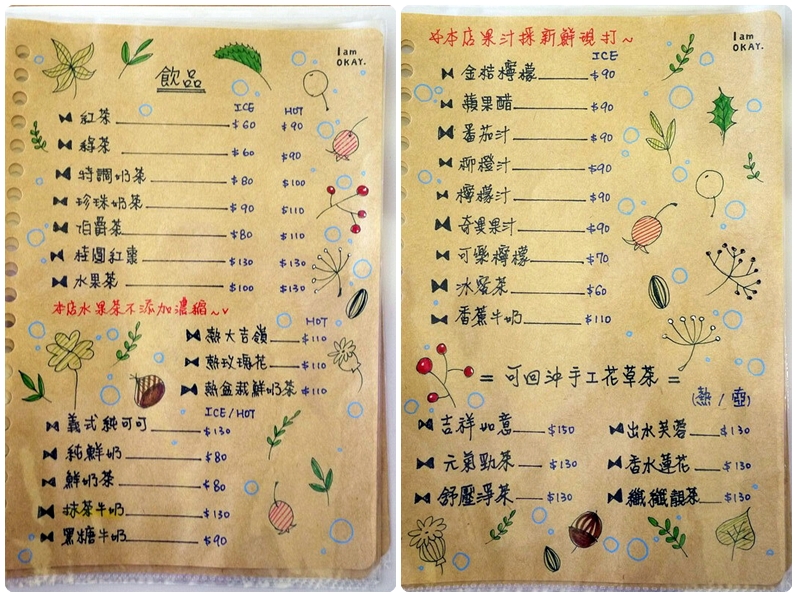 I am
OKAY.
飲品
ICE HOT
紅茶 $60 $90
綠茶 $60 $90
特調奶茶 $80 $100
珍珠奶茶 $90 $110
伯爵茶 $80 $110
桂圓紅棗 $130 $130
水果茶 $100 $130
本店水果茶不添加濃縮~
HOT
熱大吉嶺 $110
熱玫瑰花 $110
熱盆栽鮮奶茶 $110
ICE/HOT
義式純可可 $130
純鮮奶 $80
鮮奶茶 $80
抹茶牛奶 $130
黑糖牛奶 $90
本店果汁採新鮮現打~
I am
OKAY.
ICE
金桔檸檬 $90
蘋果醋 $90
番茄汁 $90
柳橙汁 $90
檸檬汁 $90
奇異果汁 $90
可樂檸檬 $70
冰蜜茶 $60
香蕉牛奶 $110
= 可回沖手工花草茶 =
(熱/壺)
吉祥如意 $150 出水芙蓉 $130
元氣勁茶 $130 香水蓮花 $130
舒壓淨茶 $130 纖纖靚茶 $130